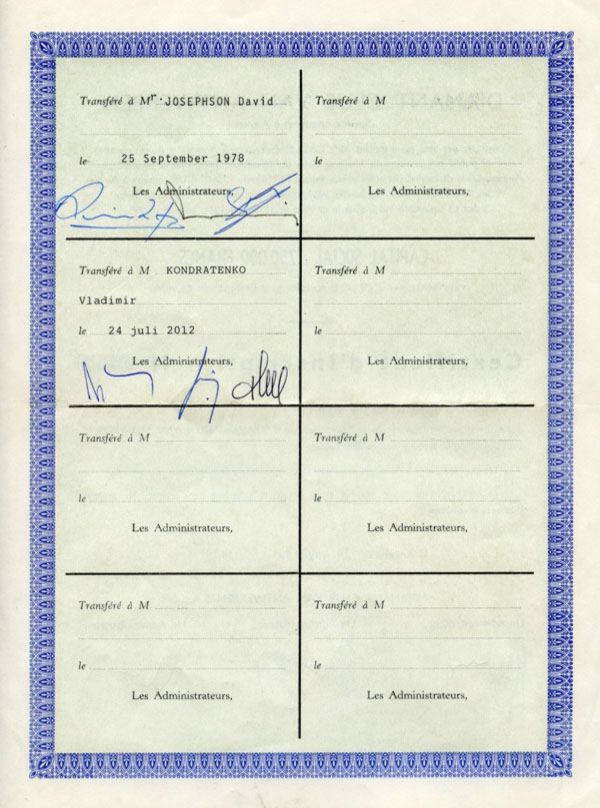 Transféré à Mr. JOSEPHSON David
le 25 September 1978
Les Administrateurs,
Transféré à M
le
Les Administrateurs,
Transféré à M KONDRATENKO
Vladimir
le 24 juli 2012
Les Administrateurs,
Transféré à M
le
Les Administrateurs,
Transféré à M
le
Les Administrateurs,
Transféré à M
le
Les Administrateurs,
Transféré à M
le
Les Administrateurs,
Transféré à M
le
Les Administrateurs,